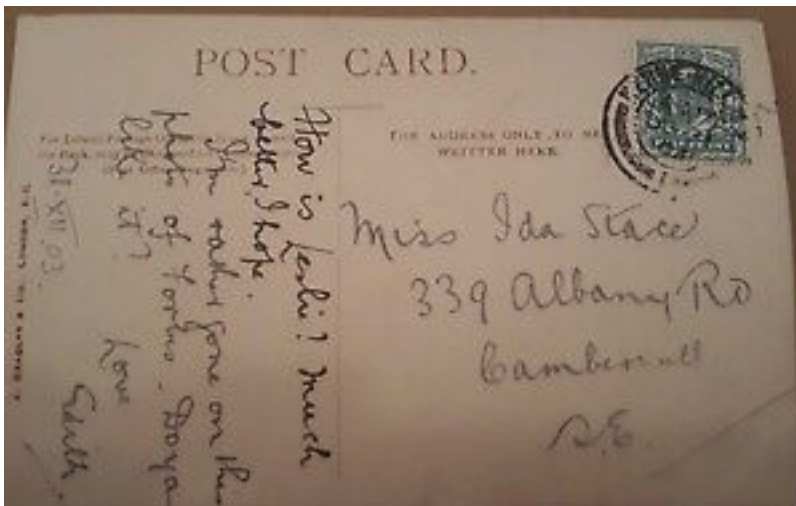 POST CARD.
THE ADDRESS ONLY TO BE
WRITTEN HERE.
How is Leslie? Much
better, I hope.
I'm rather gone on this
photo of Forbes. Doya
like it?
Love
Edith.
31.XII.03.
Miss Ida Stace
339 Albany Rd
Camberwell
S.E.
& Co., LONDON, E.C.